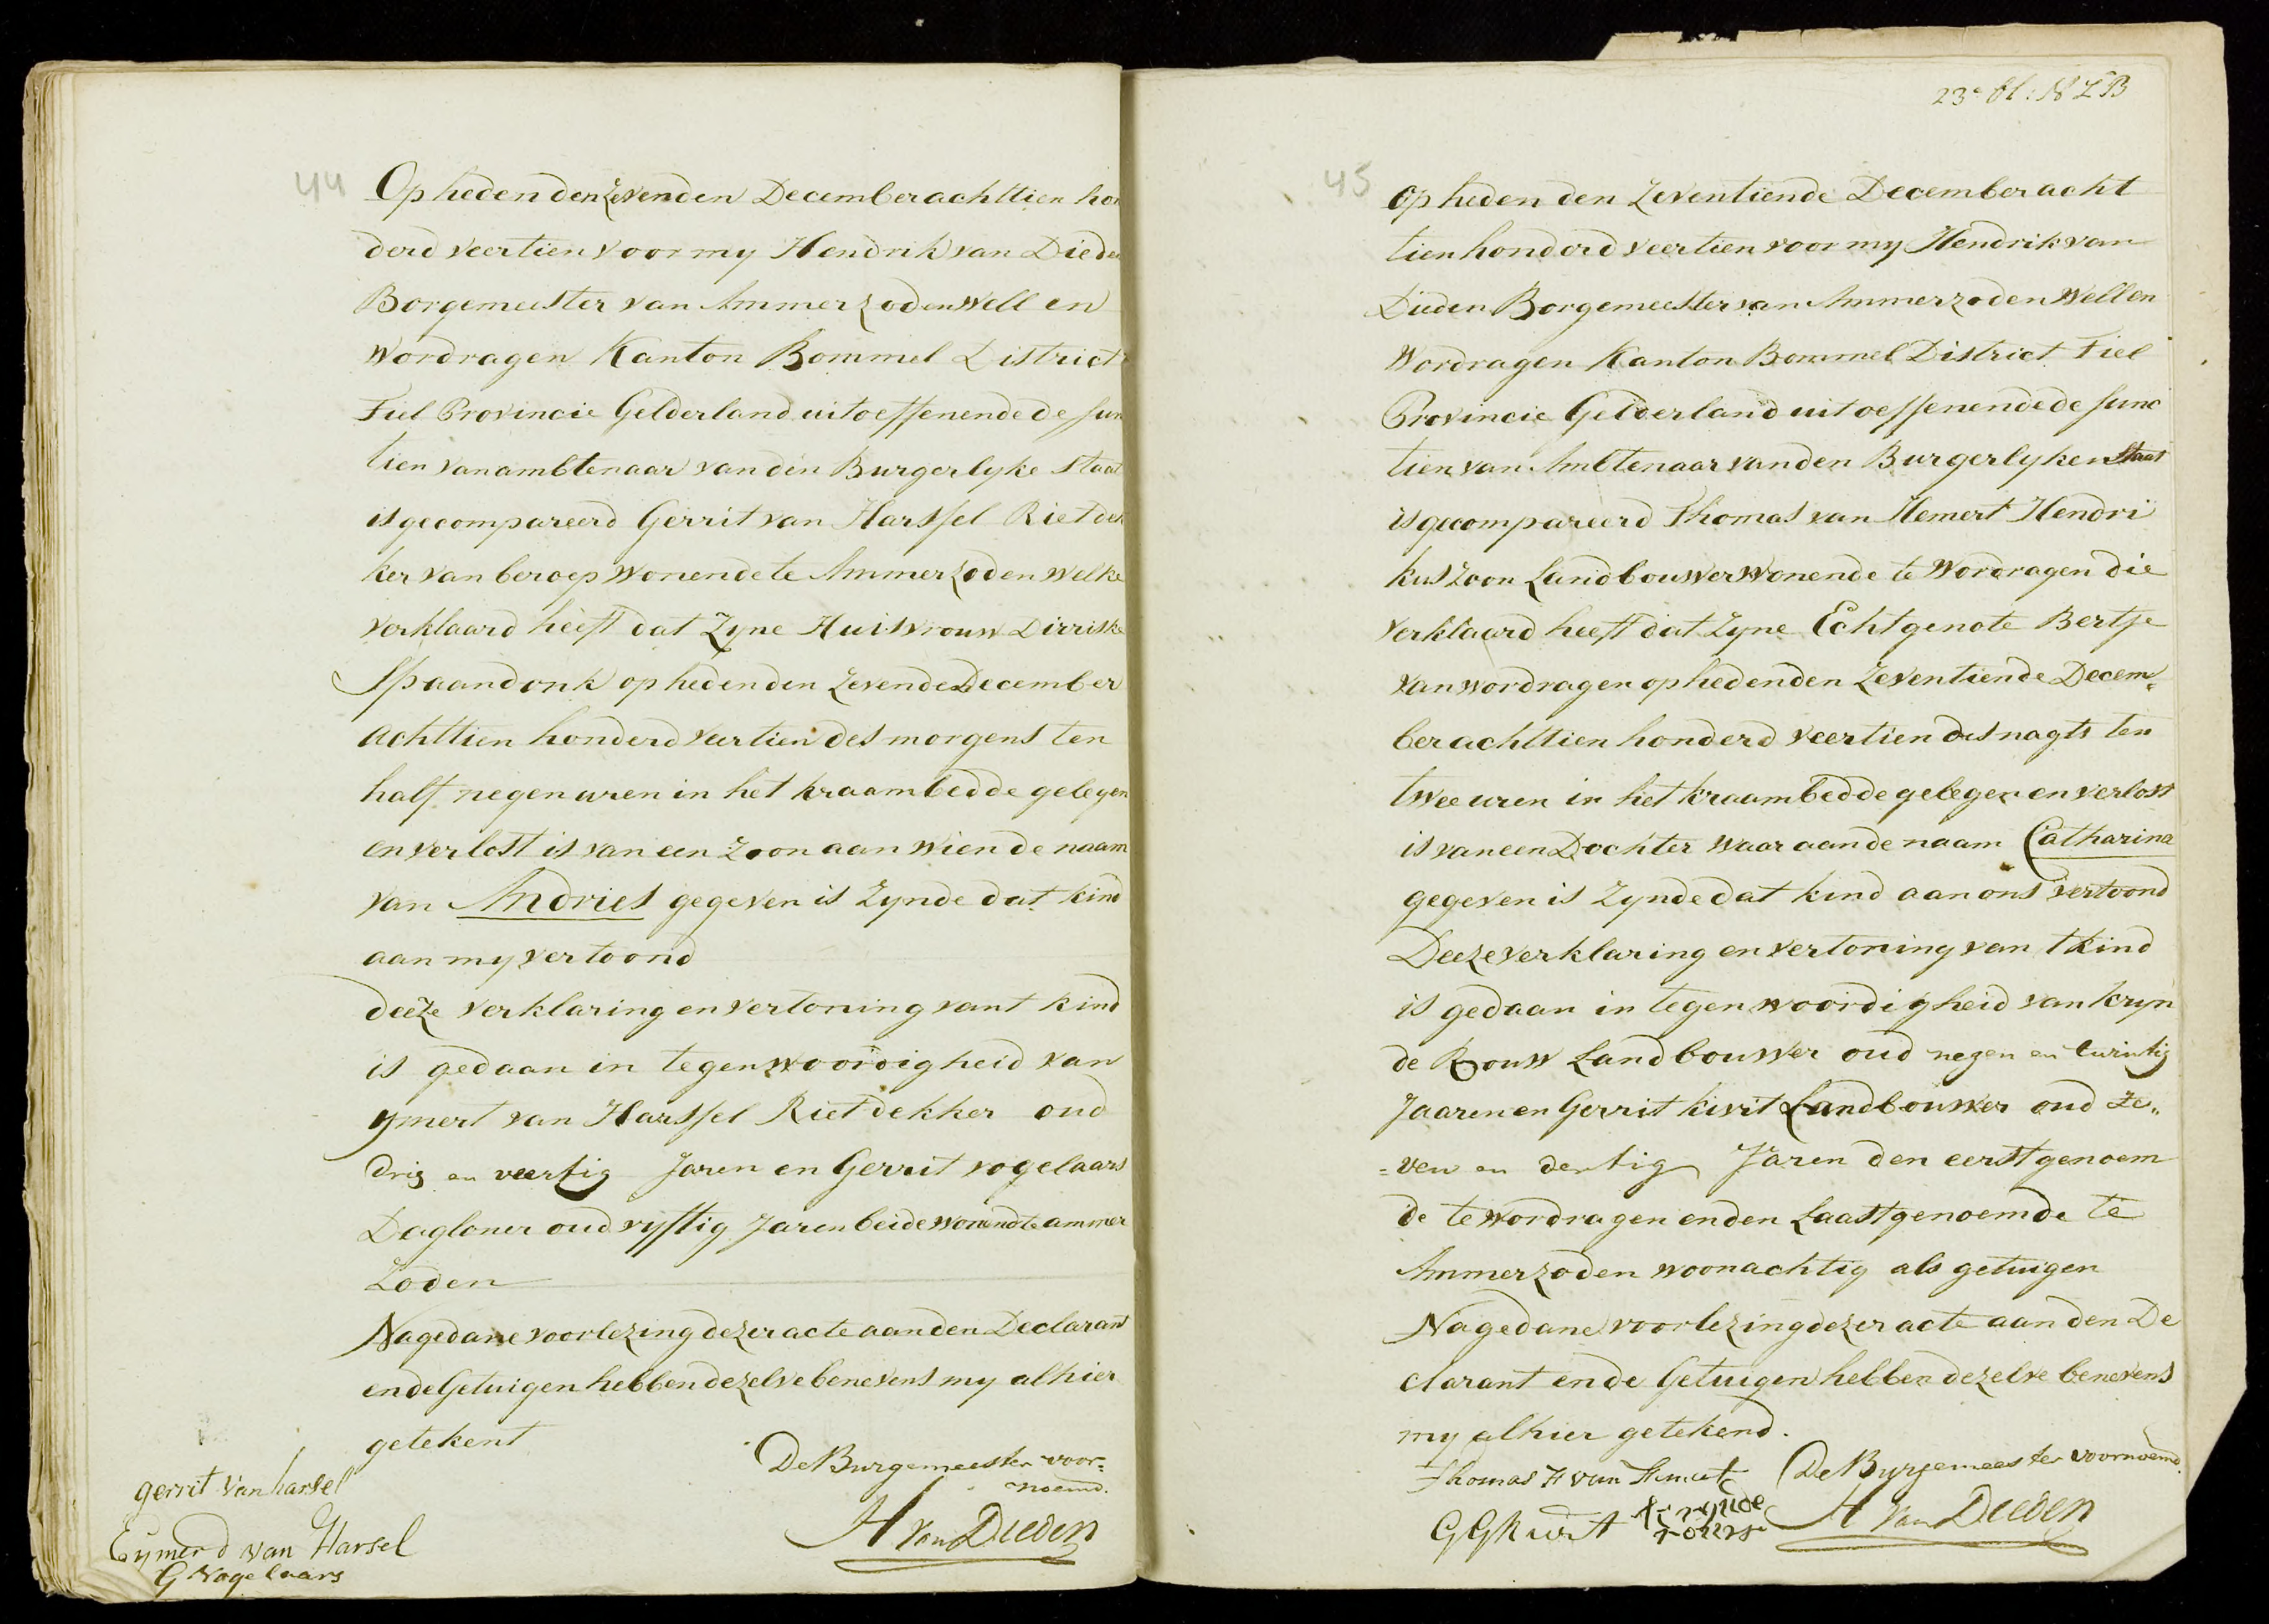 44
Op heden den zevenden December achttien hon
derd veertien voor my Hendrik van Dieden
Borgemeester van Ammerzoden Well en
Wordragen Kanton Bommel District
Tiel Provincie Gelderland uitoeffenende de fun
tien van ambtenaar van den Burgerlyke Staat
is gecompareerd Gerrit van Harssel Rietdek
ker van beroep wonende te Ammerzoden welke
verklaard heeft dat Zyne Huisvrouw Dirriske
Spaandonk op heden den zevenden December
achttien honderd veertien des morgens ten
half negen uren in het kraambedde gelegen
en verlost is van een zoon aan wien de naam
van Andries gegeven is Zynde dat kind
aan my vertoond
deeze verklaring en vertoning vant kind
is gedaan in tegenwoordigheid van
ymert van Harssel Rietdekker oud
drig en veertig Jaren en Gerrit vogelaars
Dagloner oud vyftig Jaren beide wonende te ammer
zoden
Na gedane voorlezing dezer acte aan den Declarant
en de Getuigen hebben dezelve benevens my alhier
getekent
De Burgemeester voor=
noemd.
gerrit van harsel
Eymerd van Harsel
G Vogelaars
H van Dieden
23e bl: N Z B
45
Op heden den Zeventiende December acht
tien honderd veertien voor my Hendrik van
Dieden Borgemeester van Ammerzoden Well en
Wordragen Kanton Bommel District Tiel
Provincie Gelderland uitoeffenende de func
tien van Ambtenaar van den Burgerlyken Staat
is gecompareerd Thomas van Hemert Hendri
kus zoon Landbouwer wonende te Wordragen die
verklaard heeft dat Zyne Echtgenote Bertje
van wordragen op heden den Zeventiende Decem=
ber achttien honderd veertien des nagts ten
twee uren in het kraambedde gelegen en verlost
is van een Dochter waar aan de naam Catharina
gegeven is Zynde dat kind aan ons vertoond
Deeze verklaring en vertoning van t kind
is gedaan in tegenwoordigheid van kryn
de Rouw Landbouwer oud negen en twintig
Jaaren en Gerrit kivit Landbouwer oud ze„
=ven en dertig Jaren den eerstgenoem
de te wordragen en den Laastgenoemde te
Ammerzoden woonachtig als getuigen
Na gedane voorlezing dezer acte aan den De
clarant en de Getuigen hebben dezelve benevens
my alhier getekend.
Thomas H van Hemert De Burgemeester voornoemd.
H van Dieden